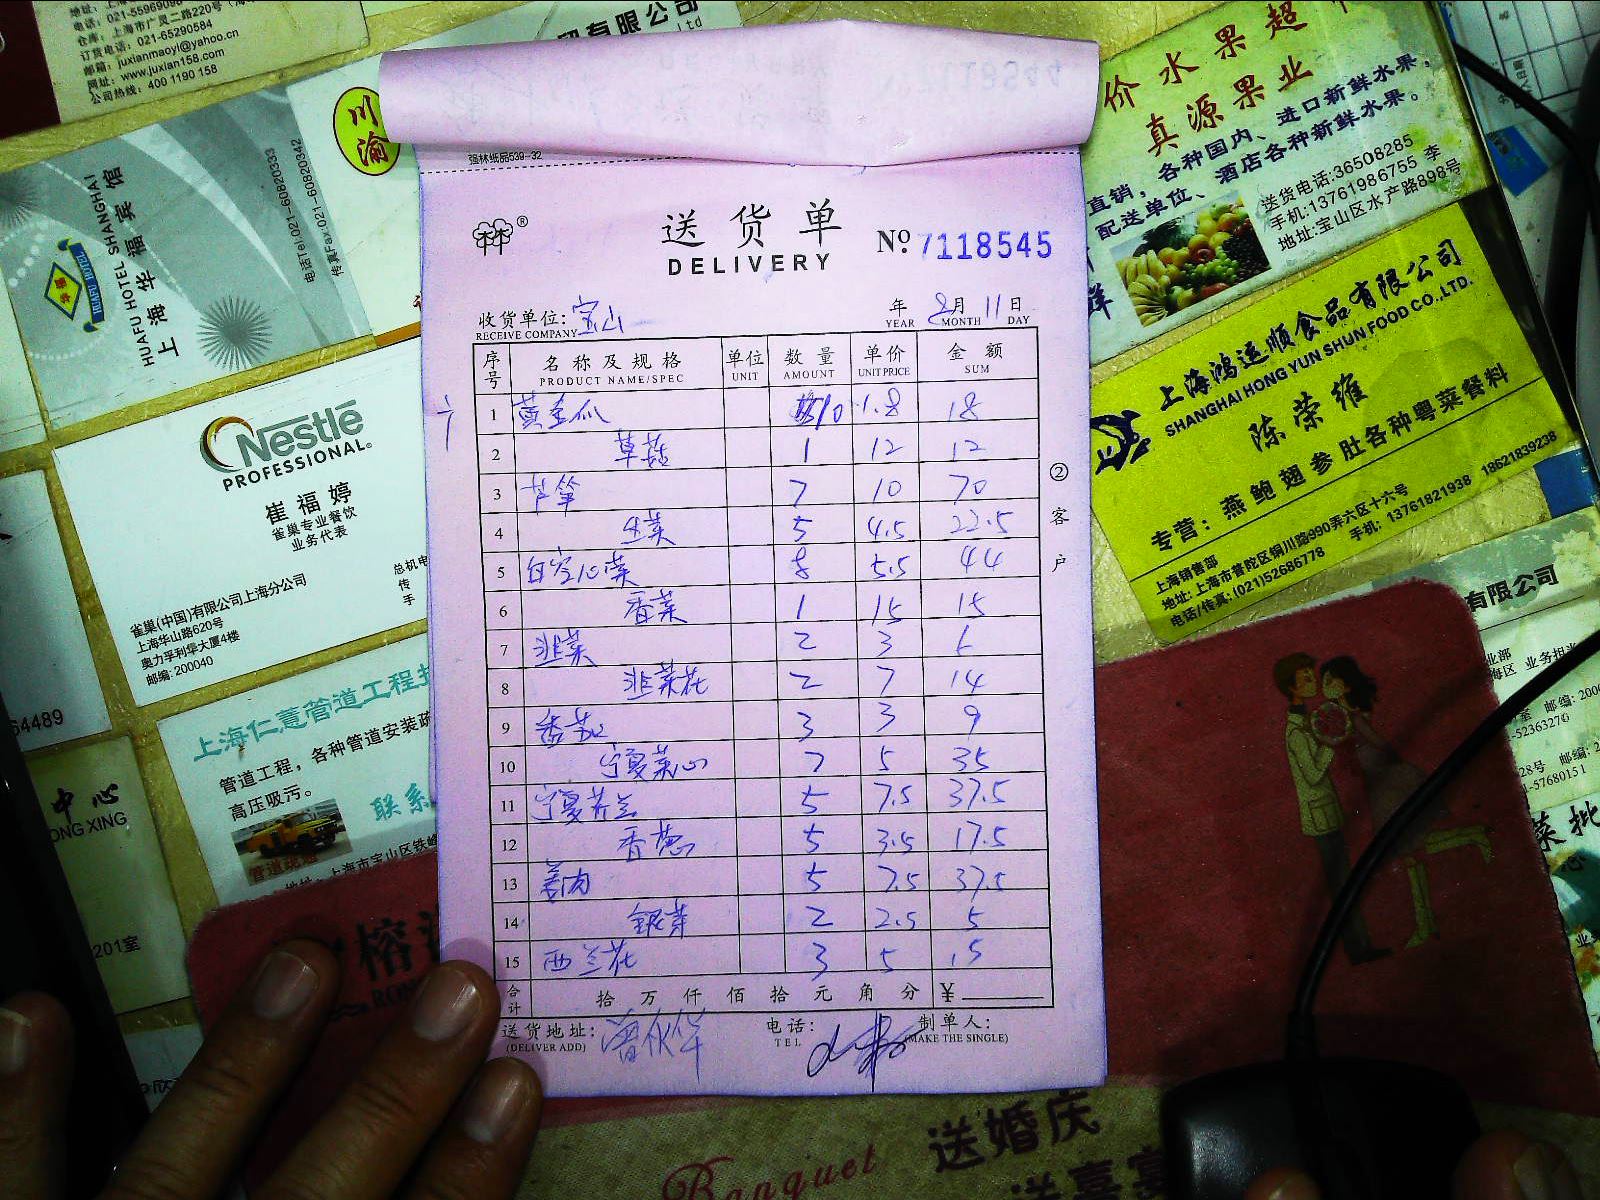 电话: 021-5596909
仓库: 上海市广灵二路220号
订货电话: 021-65290584
邮箱: juxianmaoyi@yahoo.cn
网址: www.juxian158.com
公司热线: 400 1190 158
贸有限公司
川渝
HUAFU HOTEL
HUAFU HOTEL SHANGHAI
上海华福宾馆
电话Tel:021-60820333
传真Fax:021-60820342
Nestlé
PROFESSIONAL®
崔福婷
雀巢专业餐饮
业务代表
总机电
传
手
雀巢(中国)有限公司上海分公司
上海华山路620号
奥力孚利华大厦4楼
邮编: 200040
64489
上海仁薏管道工程
管道工程，各种管道安装疏
高压吸污。
联系
管道疏通
上海市宝山区铁峰
中心
ONG XING
201室
强林纸品539-32
®
送货单
DELIVERY
No 7118545
收货单位: 宝山
RECEIVE COMPANY
年 8月 11日
YEAR MONTH DAY
序号 名称及规格 单位 数量 单价 金额
PRODUCT NAME/SPEC UNIT AMOUNT UNIT PRICE SUM
1 黄金瓜 10 1.8 18
2 草菇 1 12 12
3 芦笋 7 10 70
4 生菜 5 4.5 22.5
5 白空心菜 8 5.5 44
6 香菜 1 15 15
7 韭菜 2 3 6
8 韭菜花 2 7 14
9 番茄 3 3 9
10 宁夏菜心 7 5 35
11 宁夏芥兰 5 7.5 37.5
12 香葱 5 3.5 17.5
13 姜肉 5 7.5 37.5
14 银芽 2 2.5 5
15 西兰花 3 5 15
合计 拾万仟佰拾元角分 ¥
送货地址:
(DELIVER ADD)
电话:
TEL
制单人:
(MAKE THE SINGLE)
②客户
价水果超
真源果业
直销，各种国内、进口新鲜水果，
配送单位、酒店各种新鲜水果。
送货电话:36508285
手机:13761986755 李
地址:宝山区水产路898号
上海鸿运顺食品有限公司
SHANGHAI HONG YUN SHUN FOOD CO.,LTD.
陈荣维
专营: 燕鲍翅参肚各种粤菜餐料
上海销售部
地址: 上海市普陀区铜川路990弄六区十六号
电话/传真: (021)52686778 手机: 13761821938 18621839238
有限公司
业部
海区 业务担当
邮编: 200
-52363270
28号 邮编: 2
-57680151
菜批
榕
RON
Banquet
送婚庆
送喜宴